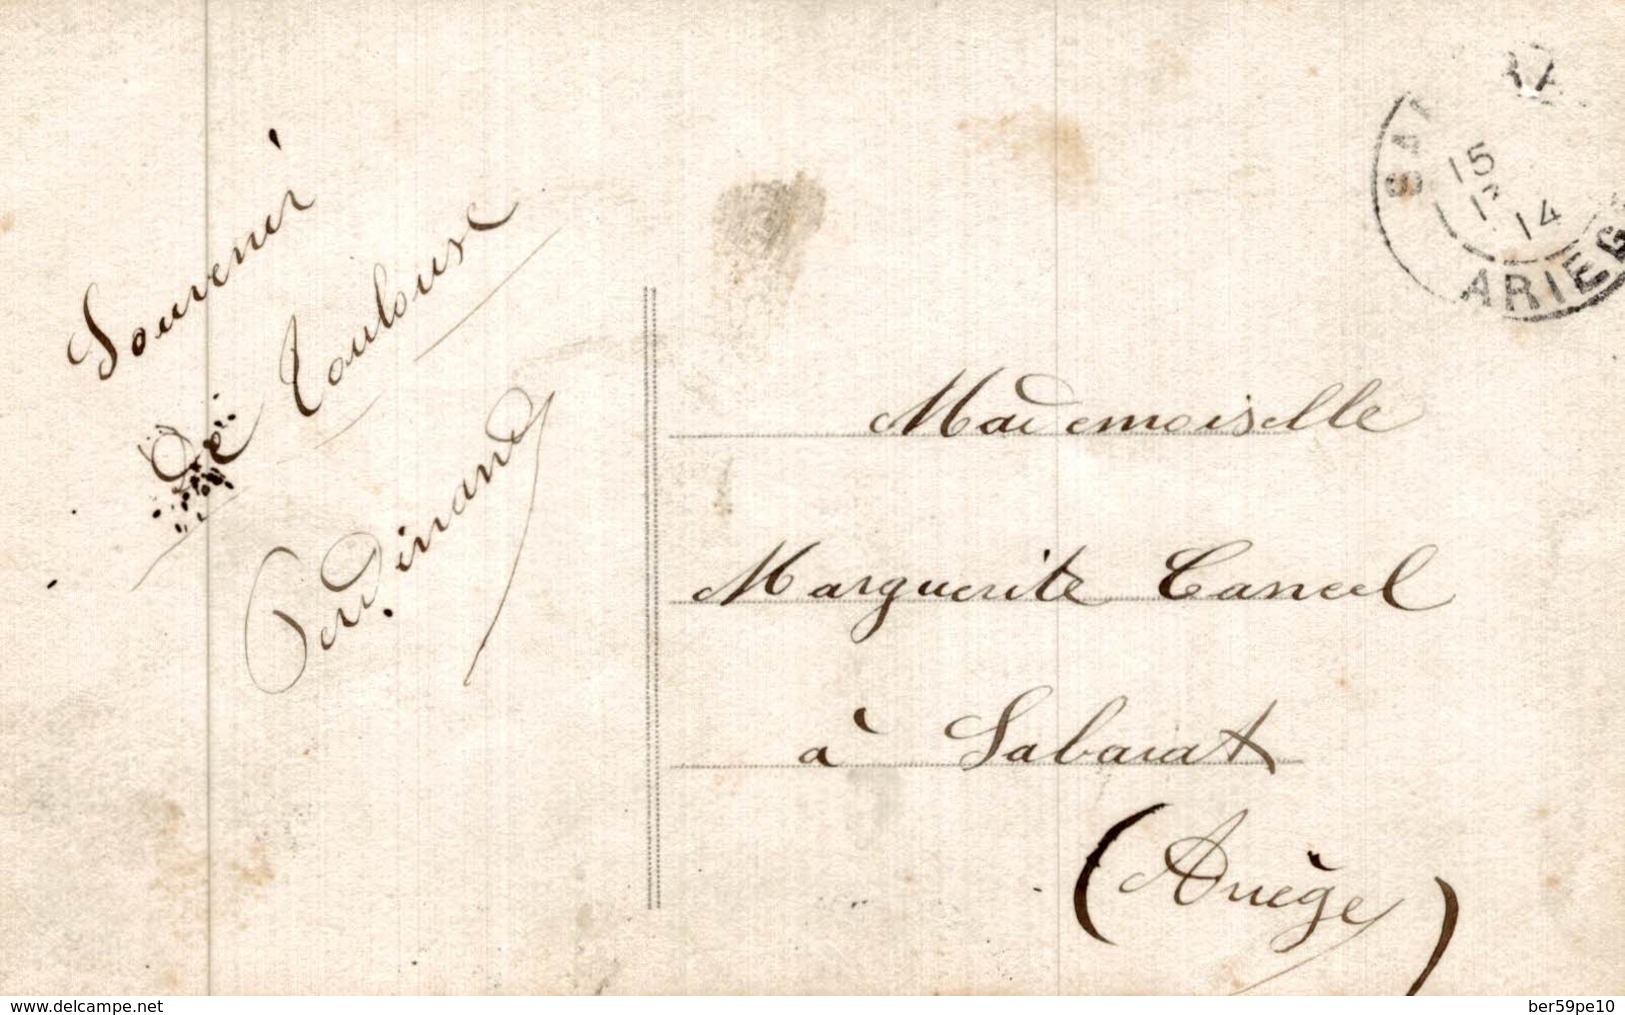 Souvenir
de Toulouse
Ferdinand
15
14
ARIEG
Mademoiselle
Marguerite Cancel
à Sabarat
(Ariège)
www.delcampe.net
ber59pe10